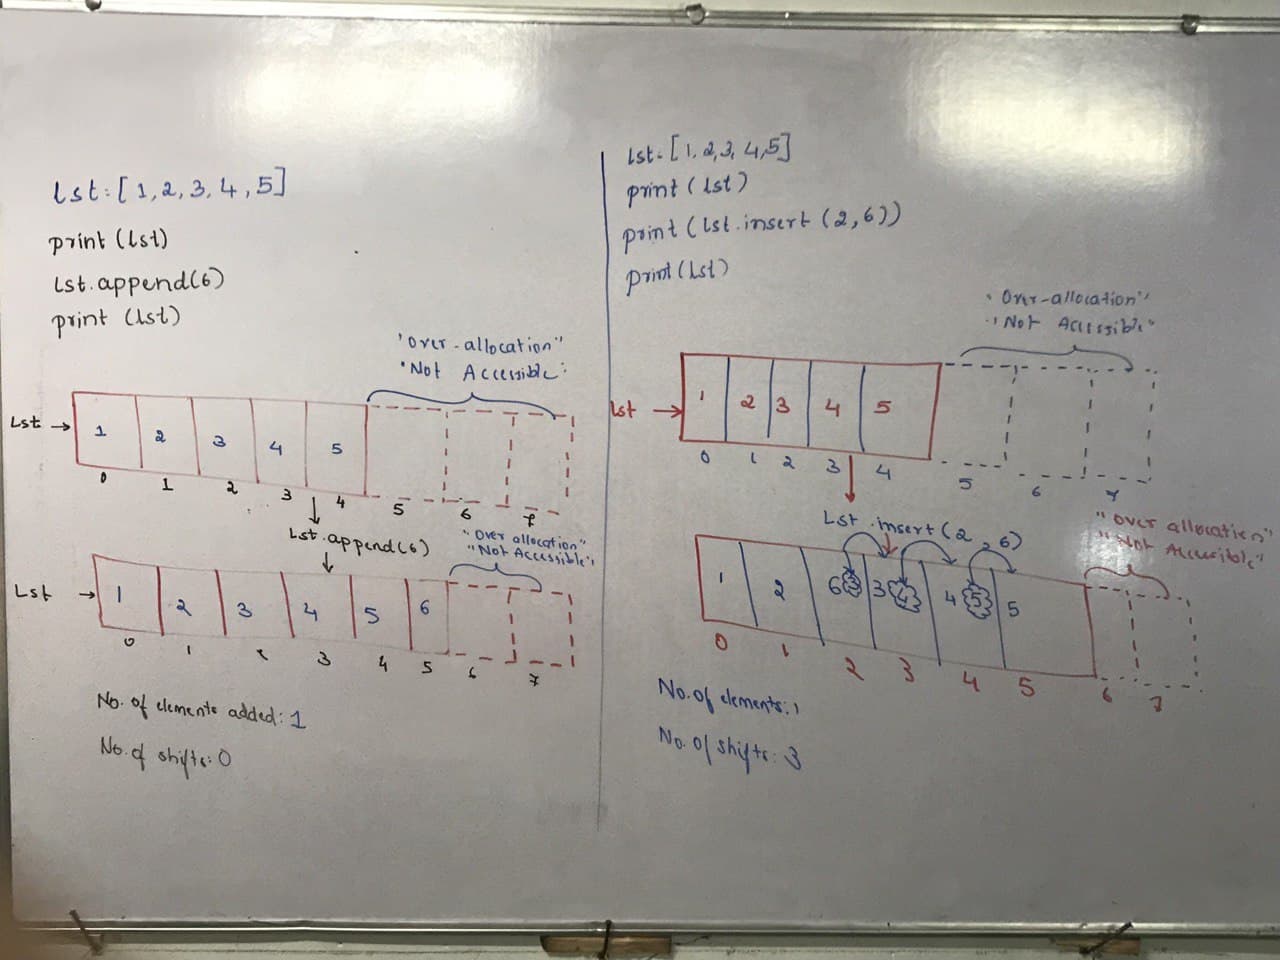 Lst=[1,2,3,4,5]
print(Lst)
Lst.append(6)
print (Lst)
"over-allocation"
"Not Accessible"
Lst →
1 2 3 4 5
0 1 2 3 4 5 6 7
Lst.append(6)
"over allocation"
"Not Accessible"
Lst →
1 2 3 4 5 6
0 1 2 3 4 5 6 7
No. of elements added: 1
No. of shifts: 0
Lst=[1,2,3,4,5]
print(Lst)
print(Lst.insert(2,6))
print(Lst)
"Over-allocation"
"Not Accessible"
Lst →
1 2 3 4 5
0 1 2 3 4 5 6 7
Lst.insert(2,6)
"over allocation"
"Not Accessible"
1 2 6 3 3 4 4 5 5
0 1 2 3 4 5 6 7
No. of elements: 1
No. of shifts: 3